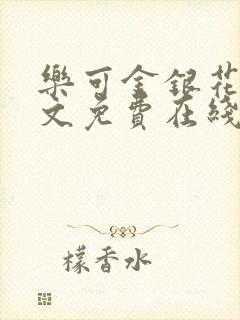 樂可金銀花
文免費在綫
檬香水